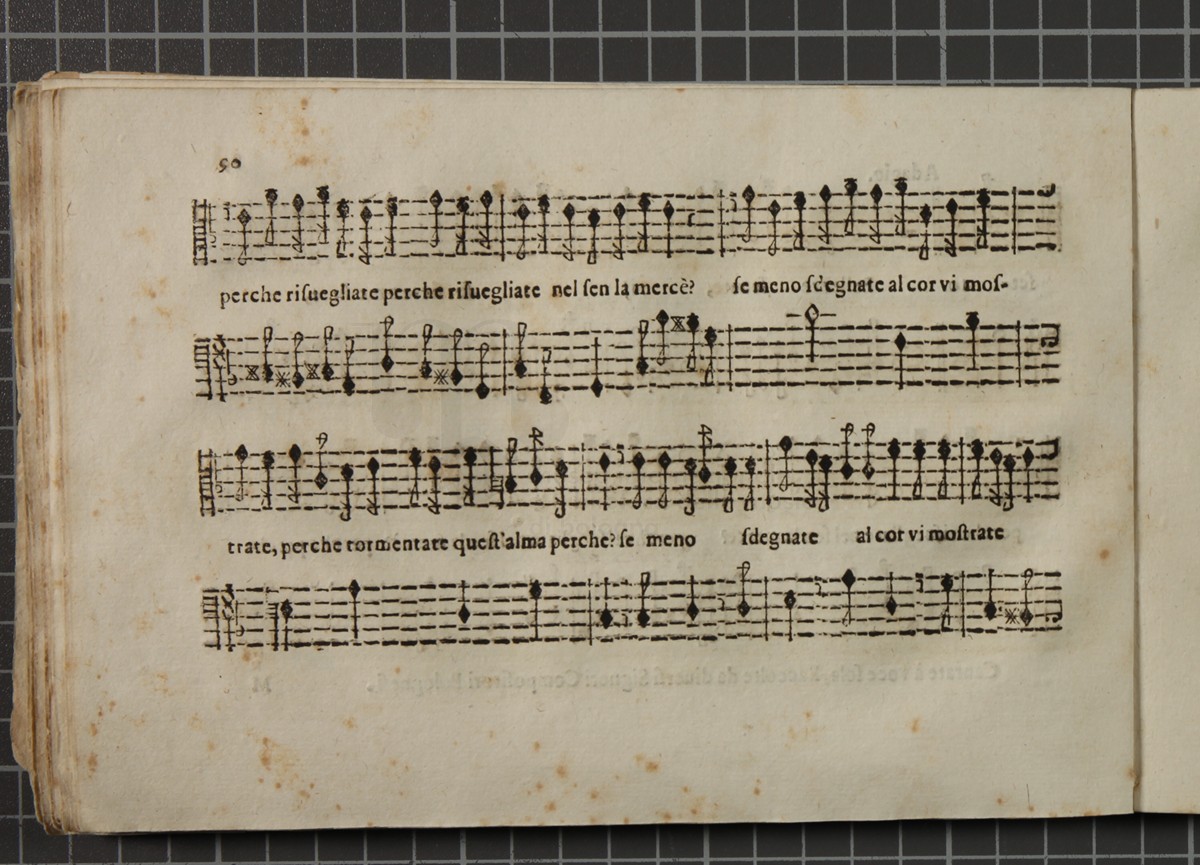 90
perche risuegliate perche risuegliate nel sen la mercè? se meno sdegnate al cor vi mos-
trate, perche tormentare quest'alma perche? se meno sdegnate al cor vi mostrate